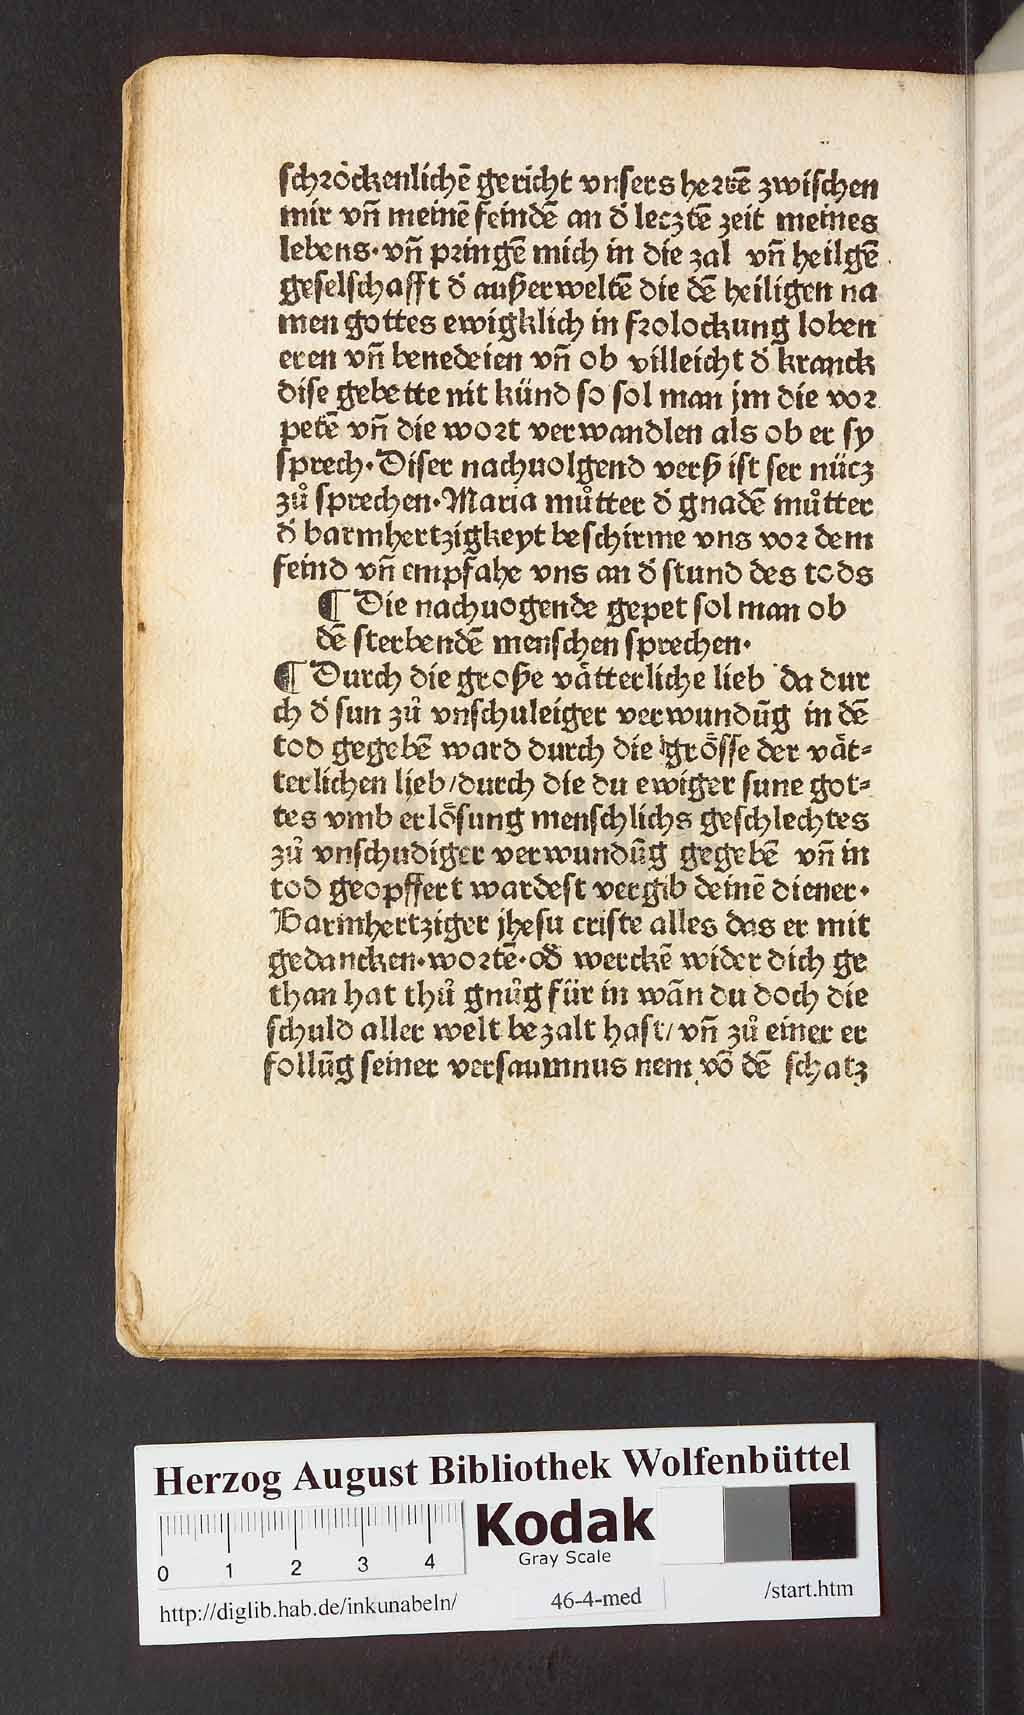 schröckenlichē gericht vnsers herrē zwischen
mir vn̄ meinē feindē an d̕ lecztē zeit meines
lebens· vn̄ pringē mich in die zal vn̄ heilgē
geselschafft d̕ außerweltē die dē heiligen na
men gottes ewigklich in frolockung loben
eren vn̄ benedeien vn̄ ob villeicht d̕ kranck
dise gebette nit künd so sol man jm die vor
petē vn̄ die wort verwandlen als ob er sy
sprech· Diser nachuolgend verß ist ser nücz
zů sprechen· Maria můtter d̕ gnadē můtter
d̕ barmhertzigkeyt beschirme vns vor dem
feind vn̄ empfahe vns an d̕ stund des tods
¶ Die nachuogende gepet sol man ob
dē sterbendē menschen sprechen·
¶ Durch die große vätterliche lieb da dur
ch d̕ sun zů vnschuleiger verwundūg in dē
tod gegebē ward durch die grösse der vät⸗
terlichen lieb/durch die du ewiger sune got⸗
tes vmb erlösung menschlichs geschlechtes
zů vnschudiger verwundūg gegebē vn̄ in
tod geopffert wardest vergib deinē diener·
Barmhertziger jhesu criste alles das er mit
gedancken· wortē· od̕ werckē wider dich ge
than hat thů gnůg für in wān du doch die
schuld aller welt bezalt hast/ vn̄ zů einer er
follūg seiner versaumnus nem vō dē schatz
Herzog August Bibliothek Wolfenbüttel
Kodak
Gray Scale
0 1 2 3 4
http://diglib.hab.de/inkunabeln/ 46-4-med /start.htm